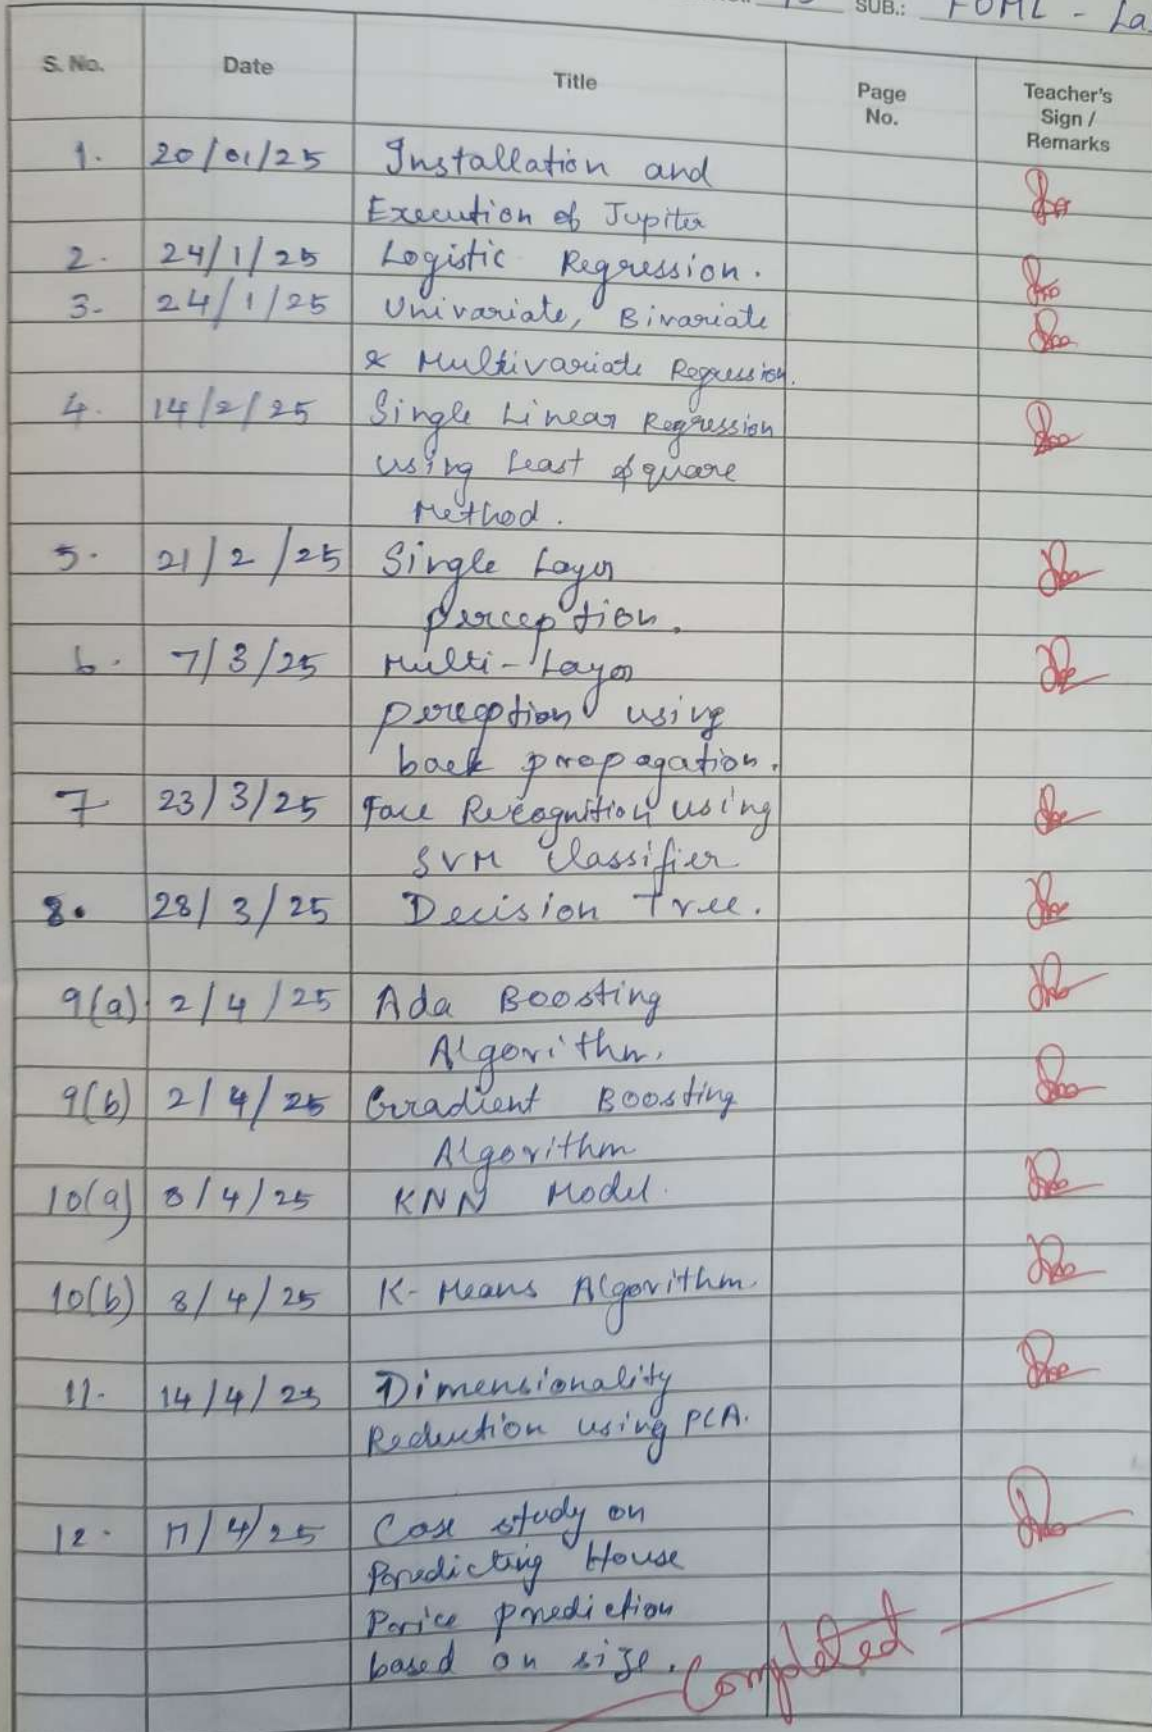 SUB.: FOML - La
S. No. Date Title Page No. Teacher's Sign / Remarks
1. 20/01/25 Installation and
Execution of Jupiter
2. 24/1/25 Logistic Regression.
3. 24/1/25 Univariate, Bivariate
& Multivariate Regression.
4. 14/2/25 Single Linear Regression
using Least square
Method.
5. 21/2/25 Single Layer
perception.
6. 7/3/25 Multi-Layer
pereeption using
back propagation.
7 23/3/25 Face Recognition using
SVM Classifier
8. 28/3/25 Decision Tree.
9(a) 2/4/25 Ada Boosting
Algorithm.
9(b) 2/4/25 Gradient Boosting
Algorithm
10(a) 8/4/25 KNN Model.
10(b) 8/4/25 K-Means Algorithm.
11. 14/4/25 Dimensionality
Reduction using PCA.
12. 17/4/25 Case study on
Predicting House
Price prediction
based on size.
Completed